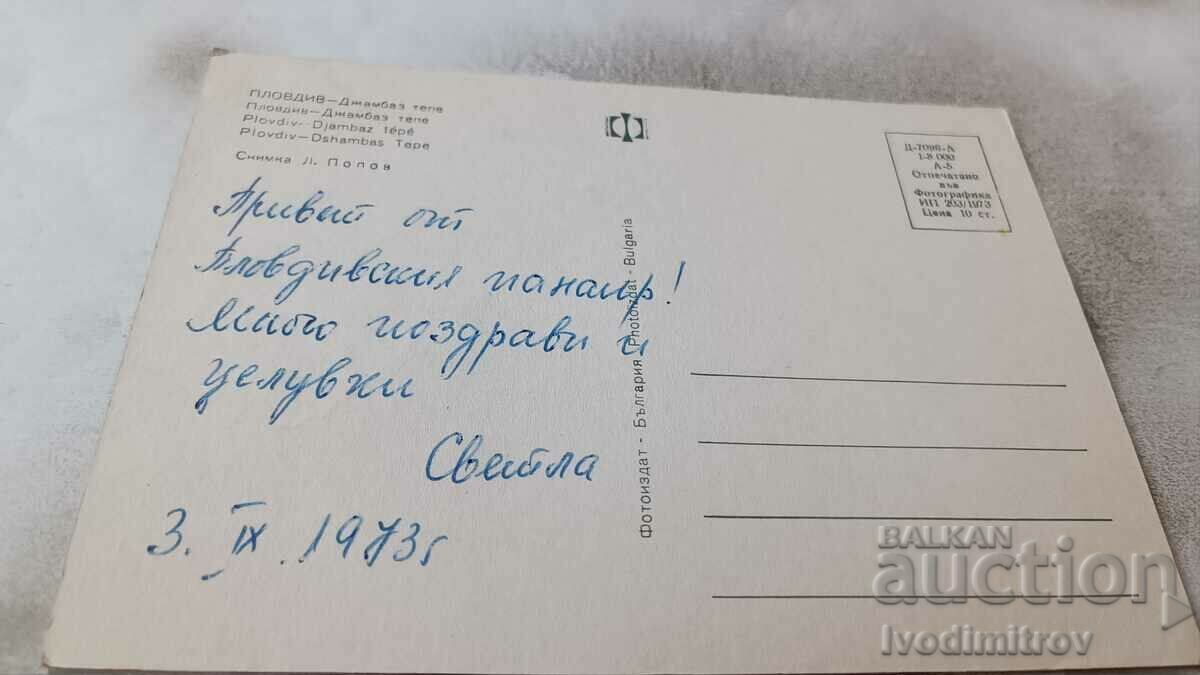 ПЛОВДИВ—Джамбаз тепе
Пловдив—Джамбаз тепе
Plovdiv—Djambaz tépé
Plovdiv—Dshambas Tepe
Снимка Л. Попов
Привет от
Пловдивския панаир!
Много поздрави и
целувки
Светла
3. IX. 1973 г
Фотоиздат - България (Photoizdat - Bulgaria
Д-7096-А
1-8 000
А-5
Отпечатано
във
Фотографика
ИП 203/1973
Цена 10 ст.
BALKAN
auction
Ivodimitrov